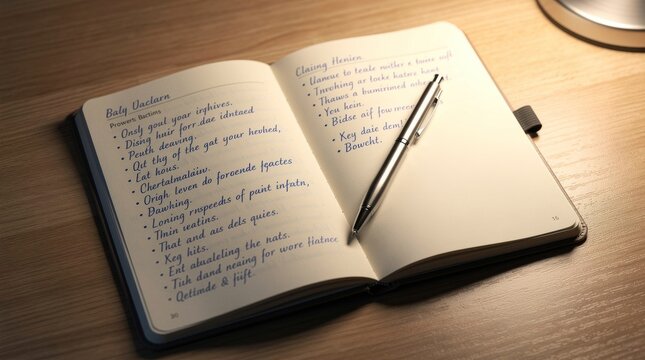 Baly Uaclarn
Prowers Bactims
• Onsly goul your irghives.
• Disng huir forr dae idntaed
• Peuth deaving.
• Qit thy of the gat your hevhed,
• Lat hous.
• Chertalmalaiw.
• Origh leven do foroende fgactes
• Dawhing.
• Loning rnspeeds of puint infatn,
• Thnn veatins.
• That and ais dels quies.
• Keg hits.
• Ent abualeling the nats.
• Tuh dand neaing for wore Hatnce
• Qetlmde & fift.
Claiing Henien
• Uanuce to teate
• Tnvohing ar locke hatnr hant
• Thaws a bumirimed
• You hein.
• Bidse aif
• Key daie
• Bowcht.